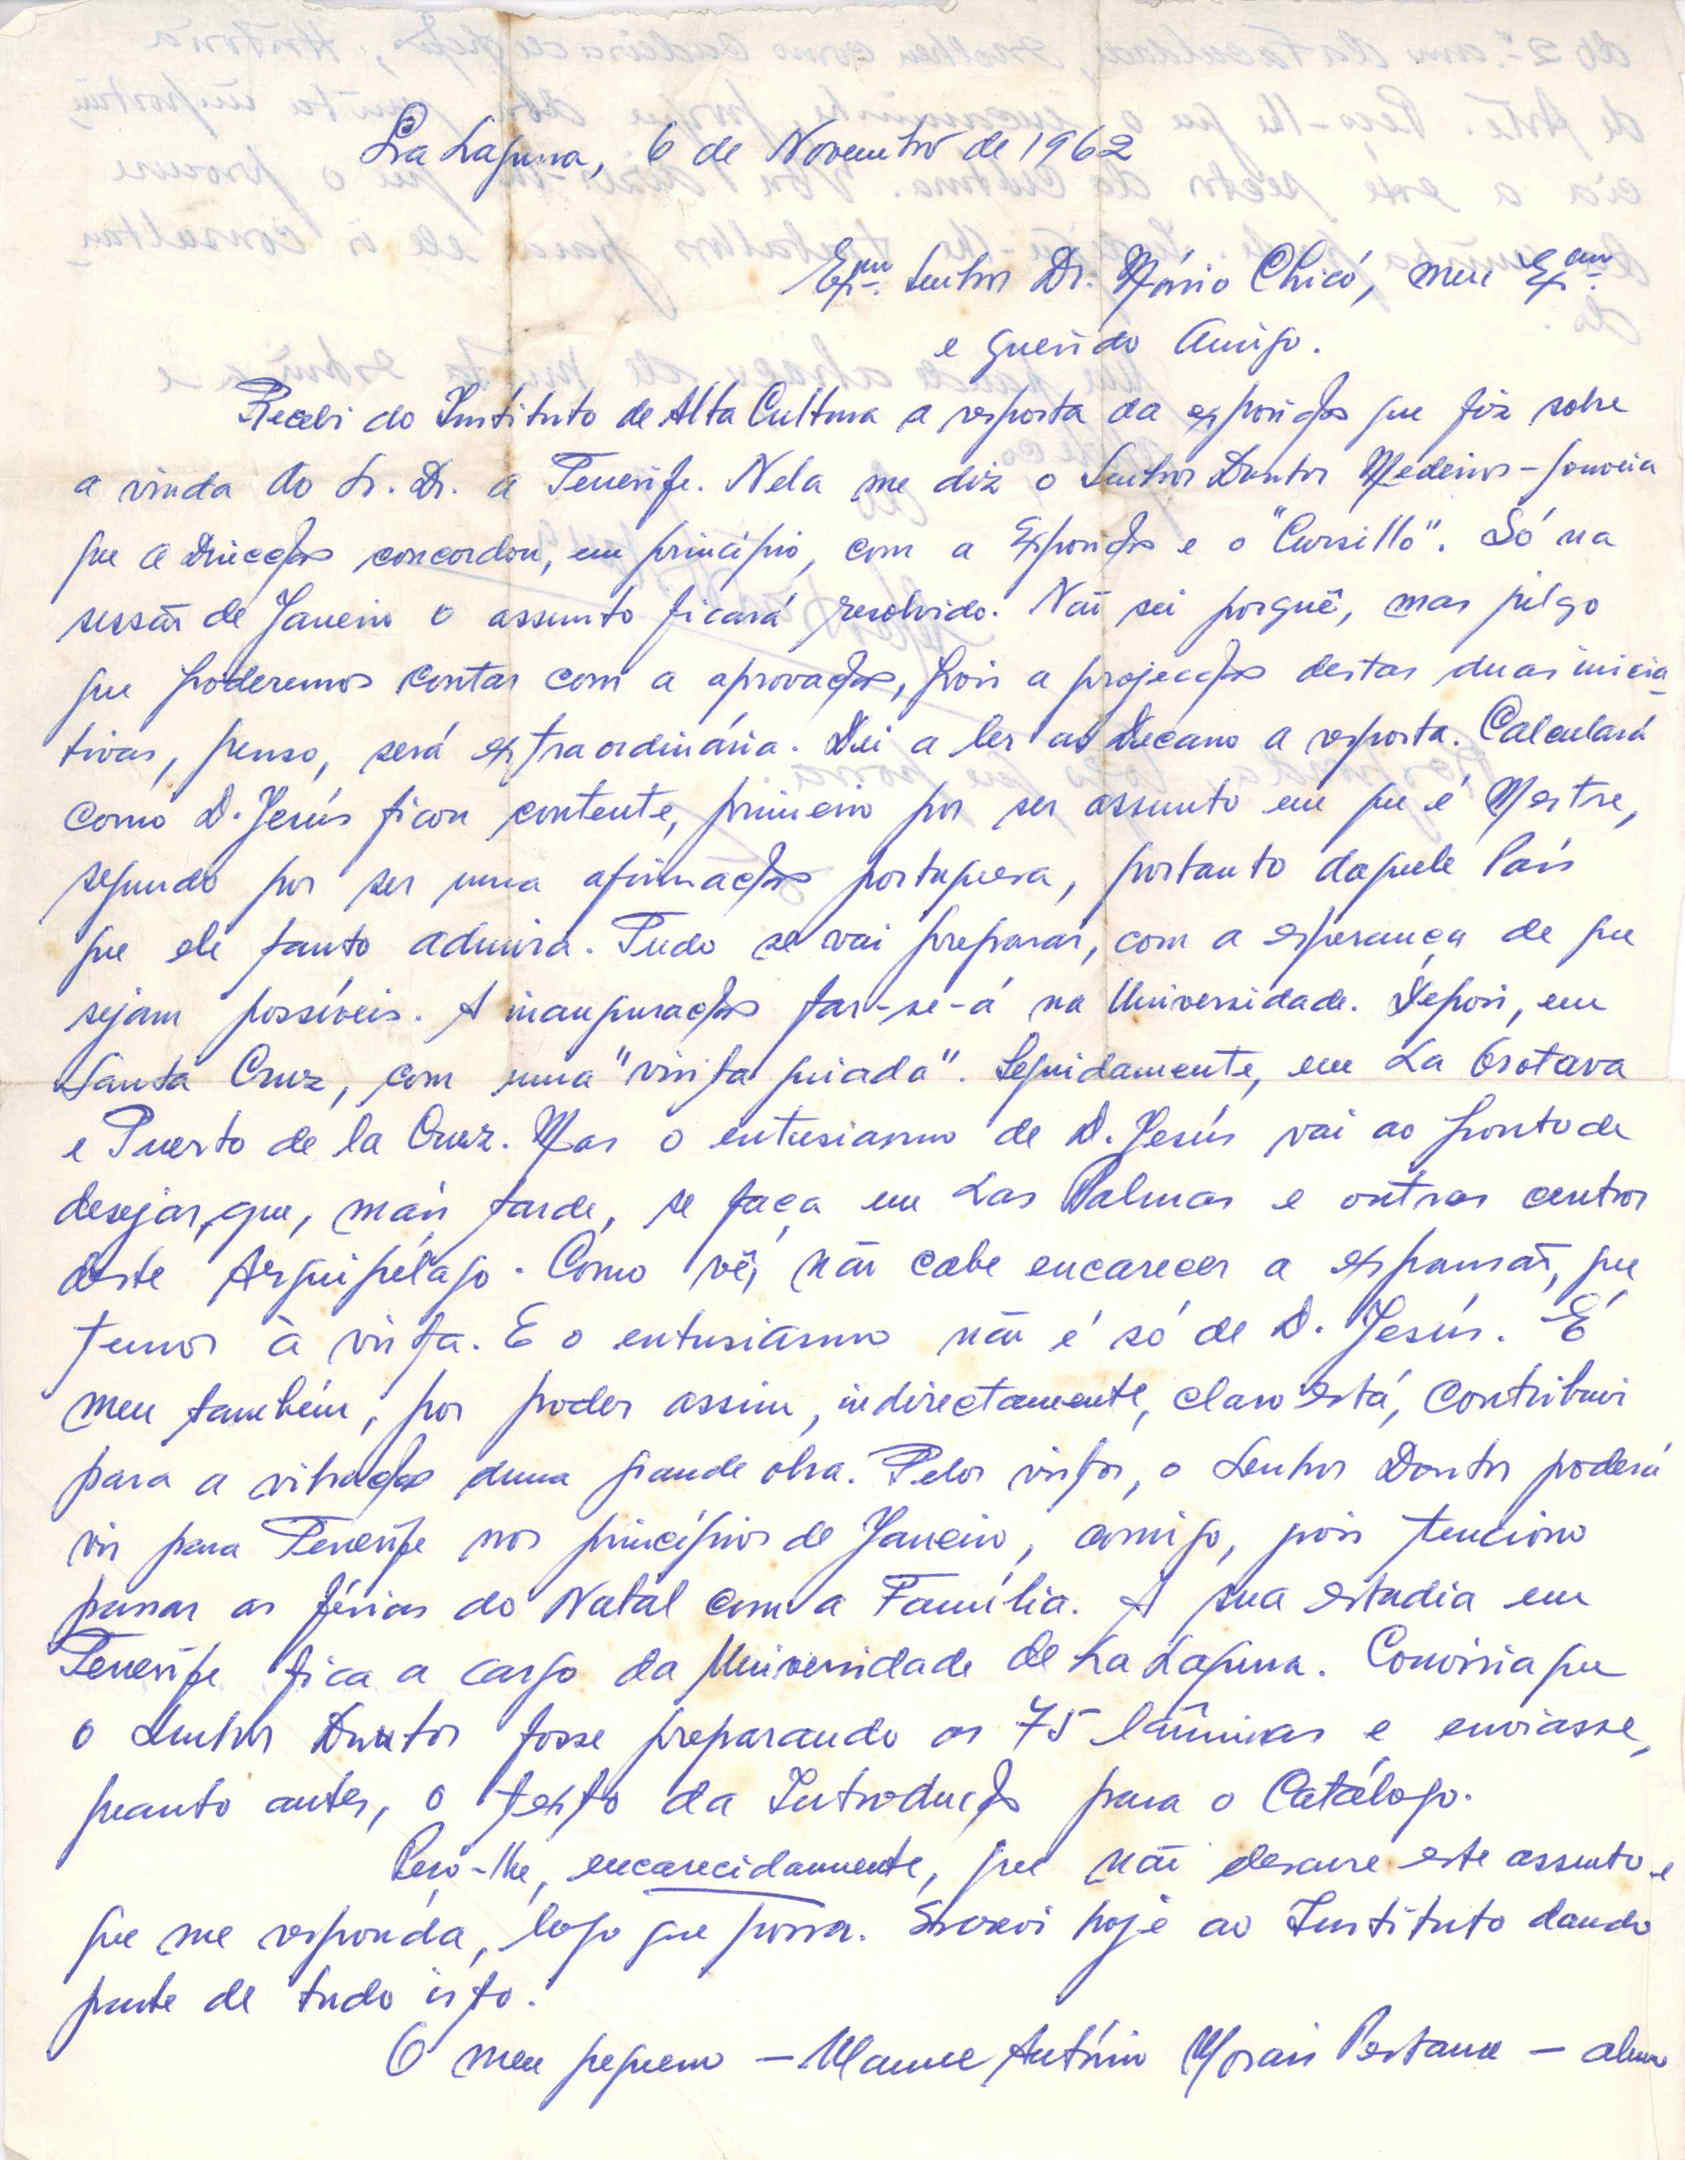 La Laguna, 6 de Novembro de 1962
Exmº. Senhor Dr. Mário Chicó, meu Exmº.
e querido Amigo.
Recebi do Instituto de Alta Cultura a resposta da exposição que fiz sobre
a vinda do Sr. Dr. a Tenerife. Nela me diz o Senhor Doutor Medeiros-Gouveia
que a Direcção concordou, em princípio, com a Exposição e o "Cursillo". Só na
sessão de Janeiro o assunto ficará resolvido. Não sei porquê, mas julgo
que poderemos contar com a aprovação, pois a projecção destas duas inicia-
tivas, penso, será extraordinária. Dei a ler ao Decano a resposta. Calculará
como D. Jesús ficou contente, primeiro por ser assunto em que é Mestre,
segundo por ser uma afirmação portuguesa, portanto daquele País
que ele tanto admira. Tudo se vai preparar, com a esperança de que
sejam possíveis. A inauguração far-se-á na Universidade. Depois, em
Santa Cruz, com uma "visita guiada". Seguidamente, em La Orotava
e Puerto de la Cruz. Mas o entusiasmo de D. Jesús vai ao ponto de
desejar, que, mais tarde, se faça em Las Palmas e outros centros
deste Arquipélago. Como vê, não cabe encarecer a expansão, que
temos à vista. E o entusiasmo não é só de D. Jesús. É
meu também, por poder assim, indirectamente, claro está, contribuir
para a vibração duma grande obra. Pelos vistos, o Senhor Doutor poderá
vir para Tenerife nos princípios de Janeiro, comigo, pois tenciono
passar as férias do Natal com a Família. A sua estadia em
Tenerife fica a cargo da Universidade de La Laguna. Conviria que
o Senhor Doutor fosse preparando as 75 lâminas e enviasse,
quanto antes, o texto da Introdução para o Catálogo.
Peço-lhe, encarecidamente, que não descure este assunto e
que me responda, logo que possa. Escrevi hoje ao Instituto dando
parte de tudo isto.
O meu pequeno — Manuel António Morais Pestana — aluno